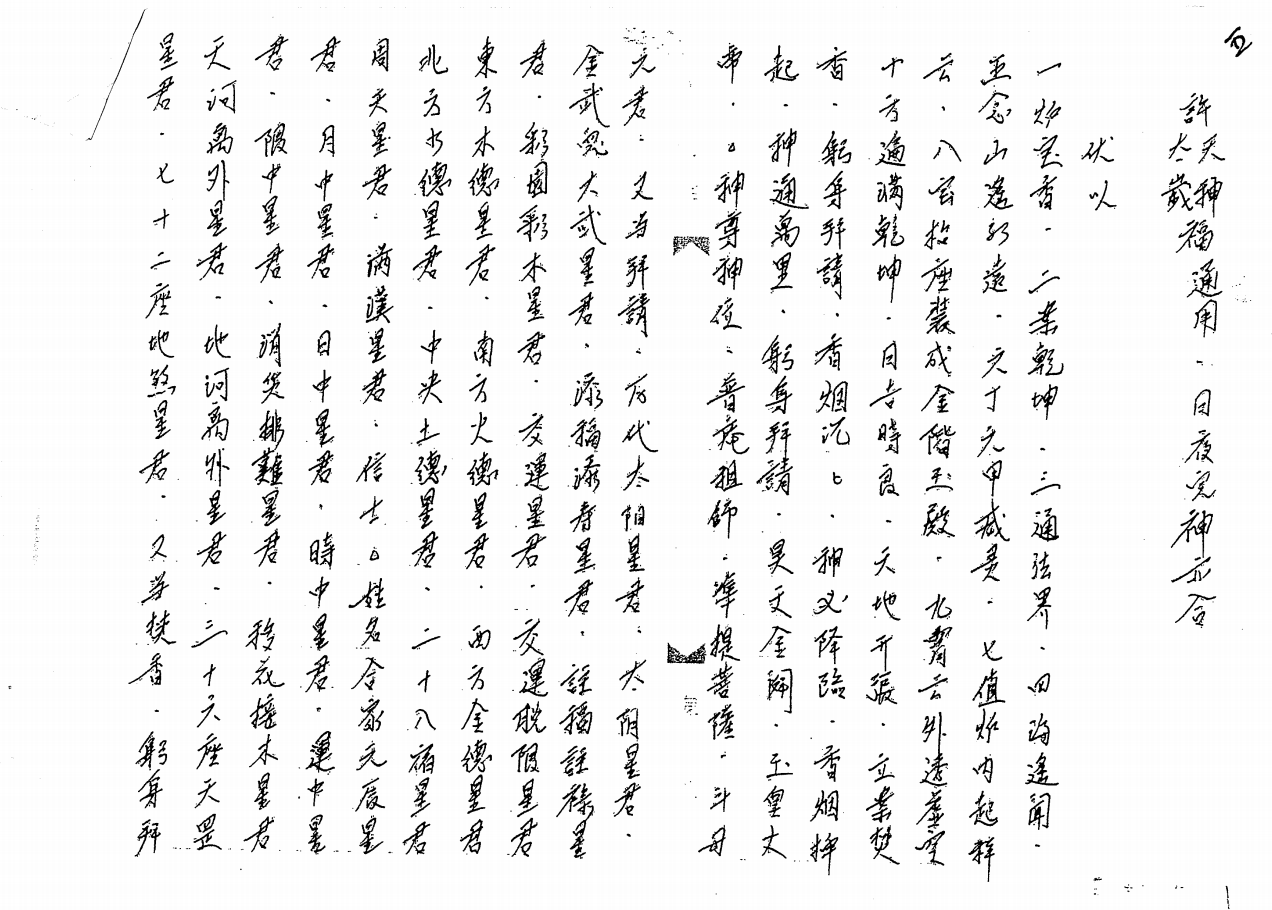 五
許天神福通用·日夜完神亦合
太歲
伏以
一炉宝香·二业乾坤·三通法界·四海遙聞·
五念山遙路遠·六丁六甲威灵·七值炉内起祥
云·八宝抬座裝成金階玉殿·九霄云外透虛空
十方遍满乾坤·日吉時良·天地开張·立案焚
香·躬身拜請·香烟沉匕·神必降臨·香烟捧
起·神通萬里·躬身拜請·昊天金闕·玉皇大
帝·△神尊神位·普庵祖師·準提菩薩·斗母
元君·又当拜請·历代太阳星君·太阴星君·
金武 大武星君·添福添寿星君·註福註祿星
君·移園移木星君·交運星君·交運脱限星君
東方木德星君·南方火德星君·西方金德星君
北方水德星君·中央土德星君·二十八宿星君
周天星君·满漢星君·信士△姓名合家元辰星
君·月中星君·日中星君·時中星君·運中星
君·限中星君·消災排難星君·移花接木星君
天河离外星君·地河离外星君·三十六座天罡
星君·七十二座地煞星君·又当焚香·躬身拜